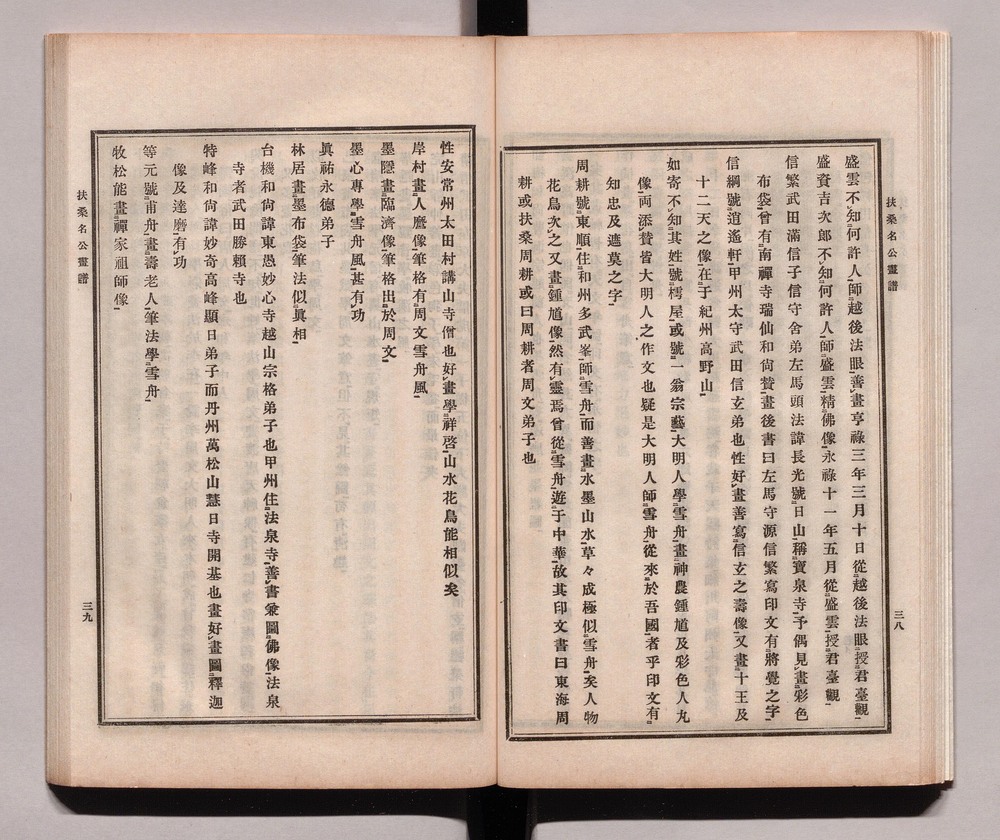 扶桑名公畫譜
三八
盛雲不知何許人師越後法眼善畫亨祿三年三月十日從越後法眼授君臺觀
盛資吉次郎不知何許人師盛雲精佛像永祿十一年五月從盛雲授君臺觀
信繁武田滿信子信守舍弟左馬頭法諱長光號日山稱寶泉寺予偶見畫彩色
布袋曾有南禪寺瑞仙和尙贊畫後書曰左馬守源信繁寫印文有將覺之字
信綱號逍遙軒甲州太守武田信玄弟也性好畫善寫信玄之壽像又畫十王及
十二天之像在于紀州高野山
如寄不知其姓號樗屋或號一翁宗藝大明人學雪舟畫神農鍾馗及彩色人丸
像兩添贊皆大明人之作文也疑是大明人師雪舟從來於吾國者乎印文有
知忠及遮莫之字
周耕號東順住和州多武峯師雪舟而善畫水墨山水草々成極似雪舟矣人物
花鳥次之又畫鍾馗像然有靈焉曾從雪舟遊于中華故其印文書曰東海周
耕或扶桑周耕或曰周耕者周文弟子也
性安常州太田村講山寺僧也好畫學祥啓山水花鳥能相似矣
岸村畫人麿像筆格有周文雪舟風
墨隱畫臨濟像筆格出於周文
墨心專學雪舟風甚有功
眞祐永德弟子
林居畫墨布袋筆法似眞相
台機和尙諱東愚妙心寺越山宗格弟子也甲州住法泉寺善書兼圖佛像法泉
寺者武田勝賴寺也
特峰和尙諱妙奇高峰顯日弟子而丹州萬松山慧日寺開基也畫好畫圖釋迦
像及達磨有功
等元號甫舟畫壽老人筆法學雪舟
牧松能畫禪家祖師像
扶桑名公畫譜
三九